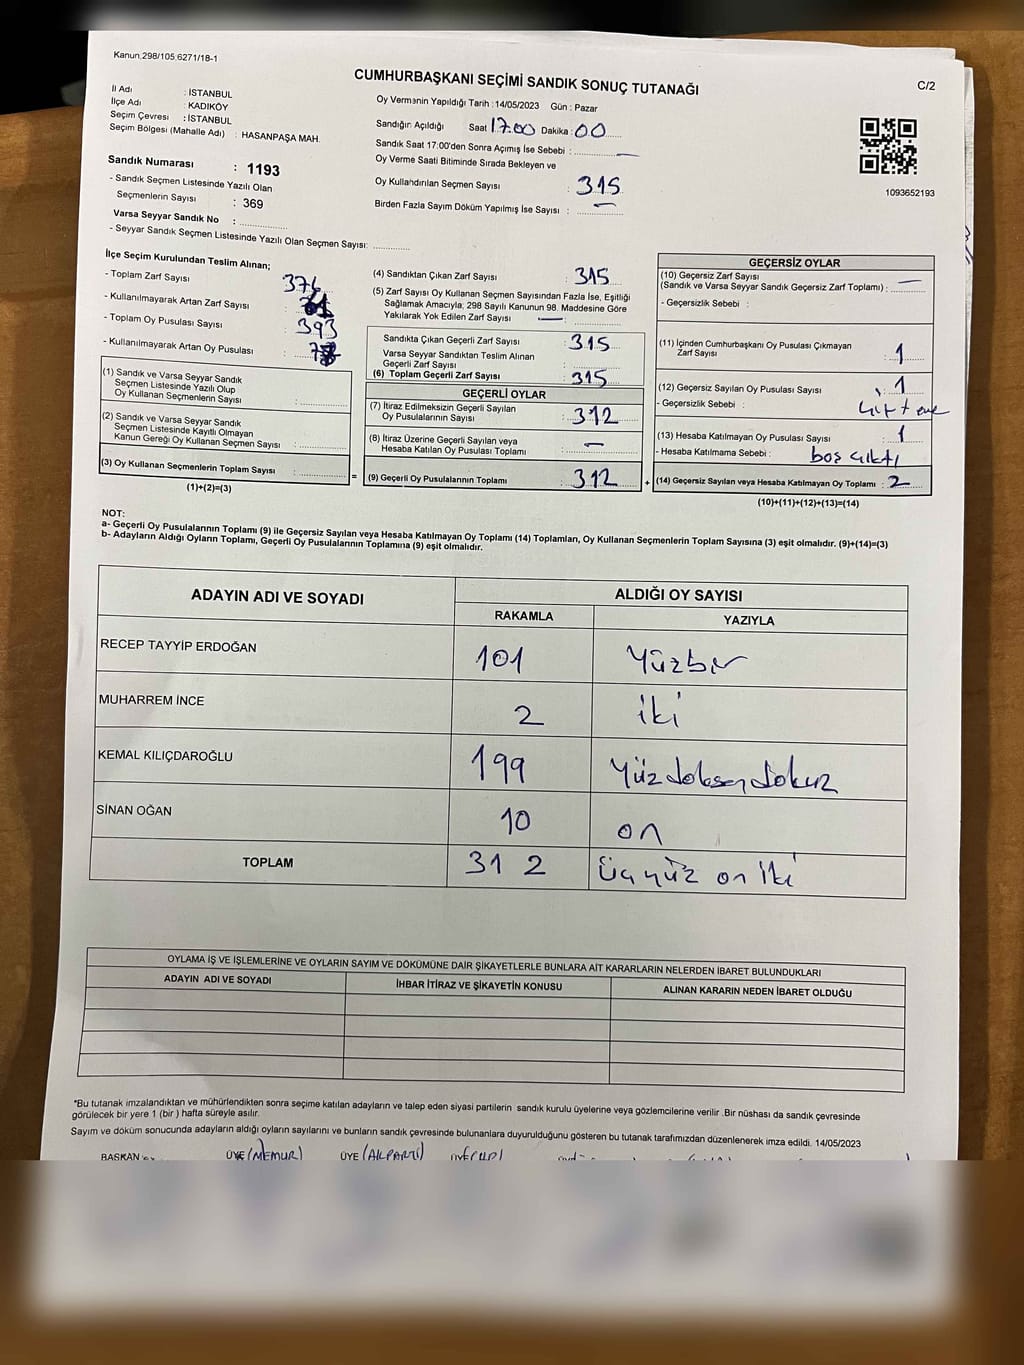 Kanun.298/105.6271/18-1
CUMHURBAŞKANI SEÇİMİ SANDIK SONUÇ TUTANAĞI
C/2
İl Adı : İSTANBUL
İlçe Adı : KADIKÖY
Seçim Çevresi : İSTANBUL
Seçim Bölgesi (Mahalle Adı) : HASANPAŞA MAH.
Sandık Numarası : 1193
- Sandık Seçmen Listesinde Yazılı Olan
Seçmenlerin Sayısı : 369
Varsa Seyyar Sandık No :
- Seyyar Sandık Seçmen Listesinde Yazılı Olan Seçmen Sayısı:
Oy Vermenin Yapıldığı Tarih : 14/05/2023 Gün : Pazar
Sandığın Açıldığı Saat 17.00 Dakika : 00
Sandık Saat 17:00'den Sonra Açımış İse Sebebi : —
Oy Verme Saati Bitiminde Sırada Bekleyen ve
Oy Kullandırılan Seçmen Sayısı : 315
Birden Fazla Sayım Döküm Yapılmış İse Sayısı : —
1093652193
İlçe Seçim Kurulundan Teslim Alınan;
- Toplam Zarf Sayısı : 376
- Kullanılmayarak Artan Zarf Sayısı :
- Toplam Oy Pusulası Sayısı : 393
- Kullanılmayarak Artan Oy Pusulası :
(1) Sandık ve Varsa Seyyar Sandık
Seçmen Listesinde Yazılı Olup
Oy Kullanan Seçmenlerin Sayısı :
(2) Sandık ve Varsa Seyyar Sandık
Seçmen Listesinde Kayıtlı Olmayan
Kanun Gereği Oy Kullanan Seçmen Sayısı :
(3) Oy Kullanan Seçmenlerin Toplam Sayısı :
(1)+(2)=(3)
=
(4) Sandıktan Çıkan Zarf Sayısı : 315
(5) Zarf Sayısı Oy Kullanan Seçmen Sayısından Fazla İse, Eşitliği
Sağlamak Amacıyla, 298 Sayılı Kanunun 98. Maddesine Göre
Yakılarak Yok Edilen Zarf Sayısı — :
Sandıkta Çıkan Geçerli Zarf Sayısı : 315
Varsa Seyyar Sandıktan Teslim Alınan
Geçerli Zarf Sayısı :
(6) Toplam Geçerli Zarf Sayısı : 315
GEÇERLİ OYLAR
(7) İtiraz Edilmeksizin Geçerli Sayılan
Oy Pusulalarının Sayısı : 312
(8) İtiraz Üzerine Geçerli Sayılan veya
Hesaba Katılan Oy Pusulası Toplamı : —
(9) Geçerli Oy Pusulalarının Toplamı : 312
+
GEÇERSİZ OYLAR
(10) Geçersiz Zarf Sayısı
(Sandık ve Varsa Seyyar Sandık Geçersiz Zarf Toplamı) : —
- Geçersizlik Sebebi :
(11) İçinden Cumhurbaşkanı Oy Pusulası Çıkmayan
Zarf Sayısı : 1
(12) Geçersiz Sayılan Oy Pusulası Sayısı : 1
- Geçersizlik Sebebi :
(13) Hesaba Katılmayan Oy Pusulası Sayısı : 1
- Hesaba Katılmama Sebebi : boş çıktı
(14) Geçersiz Sayılan veya Hesaba Katılmayan Oy Toplamı : 2
(10)+(11)+(12)+(13)=(14)
NOT:
a- Geçerli Oy Pusulalarının Toplamı (9) ile Geçersiz Sayılan veya Hesaba Katılmayan Oy Toplamı (14) Toplamları, Oy Kullanan Seçmenlerin Toplam Sayısına (3) eşit olmalıdır. (9)+(14)=(3)
b- Adayların Aldığı Oyların Toplamı, Geçerli Oy Pusulalarının Toplamına (9) eşit olmalıdır.
ADAYIN ADI VE SOYADI
ALDIĞI OY SAYISI
RAKAMLA YAZIYLA
RECEP TAYYİP ERDOĞAN 101 Yüzbir
MUHARREM İNCE 2 iki
KEMAL KILIÇDAROĞLU 199 Yüzdoksandokuz
SİNAN OĞAN 10 on
TOPLAM 312 üçyüz on iki
OYLAMA İŞ VE İŞLEMLERİNE VE OYLARIN SAYIM VE DÖKÜMÜNE DAİR ŞİKAYETLERLE BUNLARA AİT KARARLARIN NELERDEN İBARET BULUNDUKLARI
ADAYIN ADI VE SOYADI İHBAR İTİRAZ VE ŞİKAYETİN KONUSU ALINAN KARARIN NEDEN İBARET OLDUĞU
*Bu tutanak imzalandıktan ve mühürlendikten sonra seçime katılan adayların ve talep eden siyasi partilerin sandık kurulu üyelerine veya gözlemcilerine verilir .Bir nüshası da sandık çevresinde
görülecek bir yere 1 (bir ) hafta süreyle asılır.
Sayım ve döküm sonucunda adayların aldığı oyların sayılarını ve bunların sandık çevresinde bulunanlara duyurulduğunu gösteren bu tutanak tarafımızdan düzenlenerek imza edildi. 14/05/2023
BAŞKAN ÜYE (MEMUR) ÜYE (AK PARTİ)